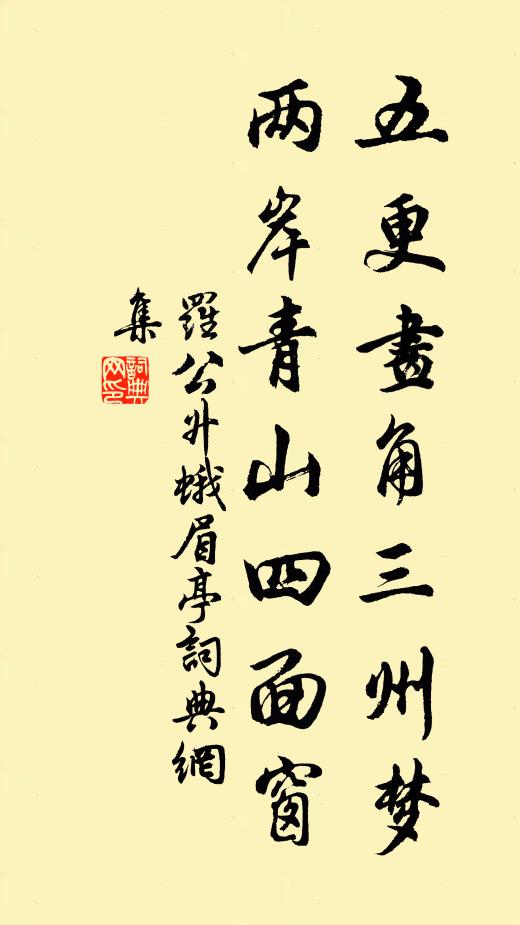 五更畫角三州梦
两岸青山四面窗
羅公升蛾眉亭詞典網
集
詞典
网印